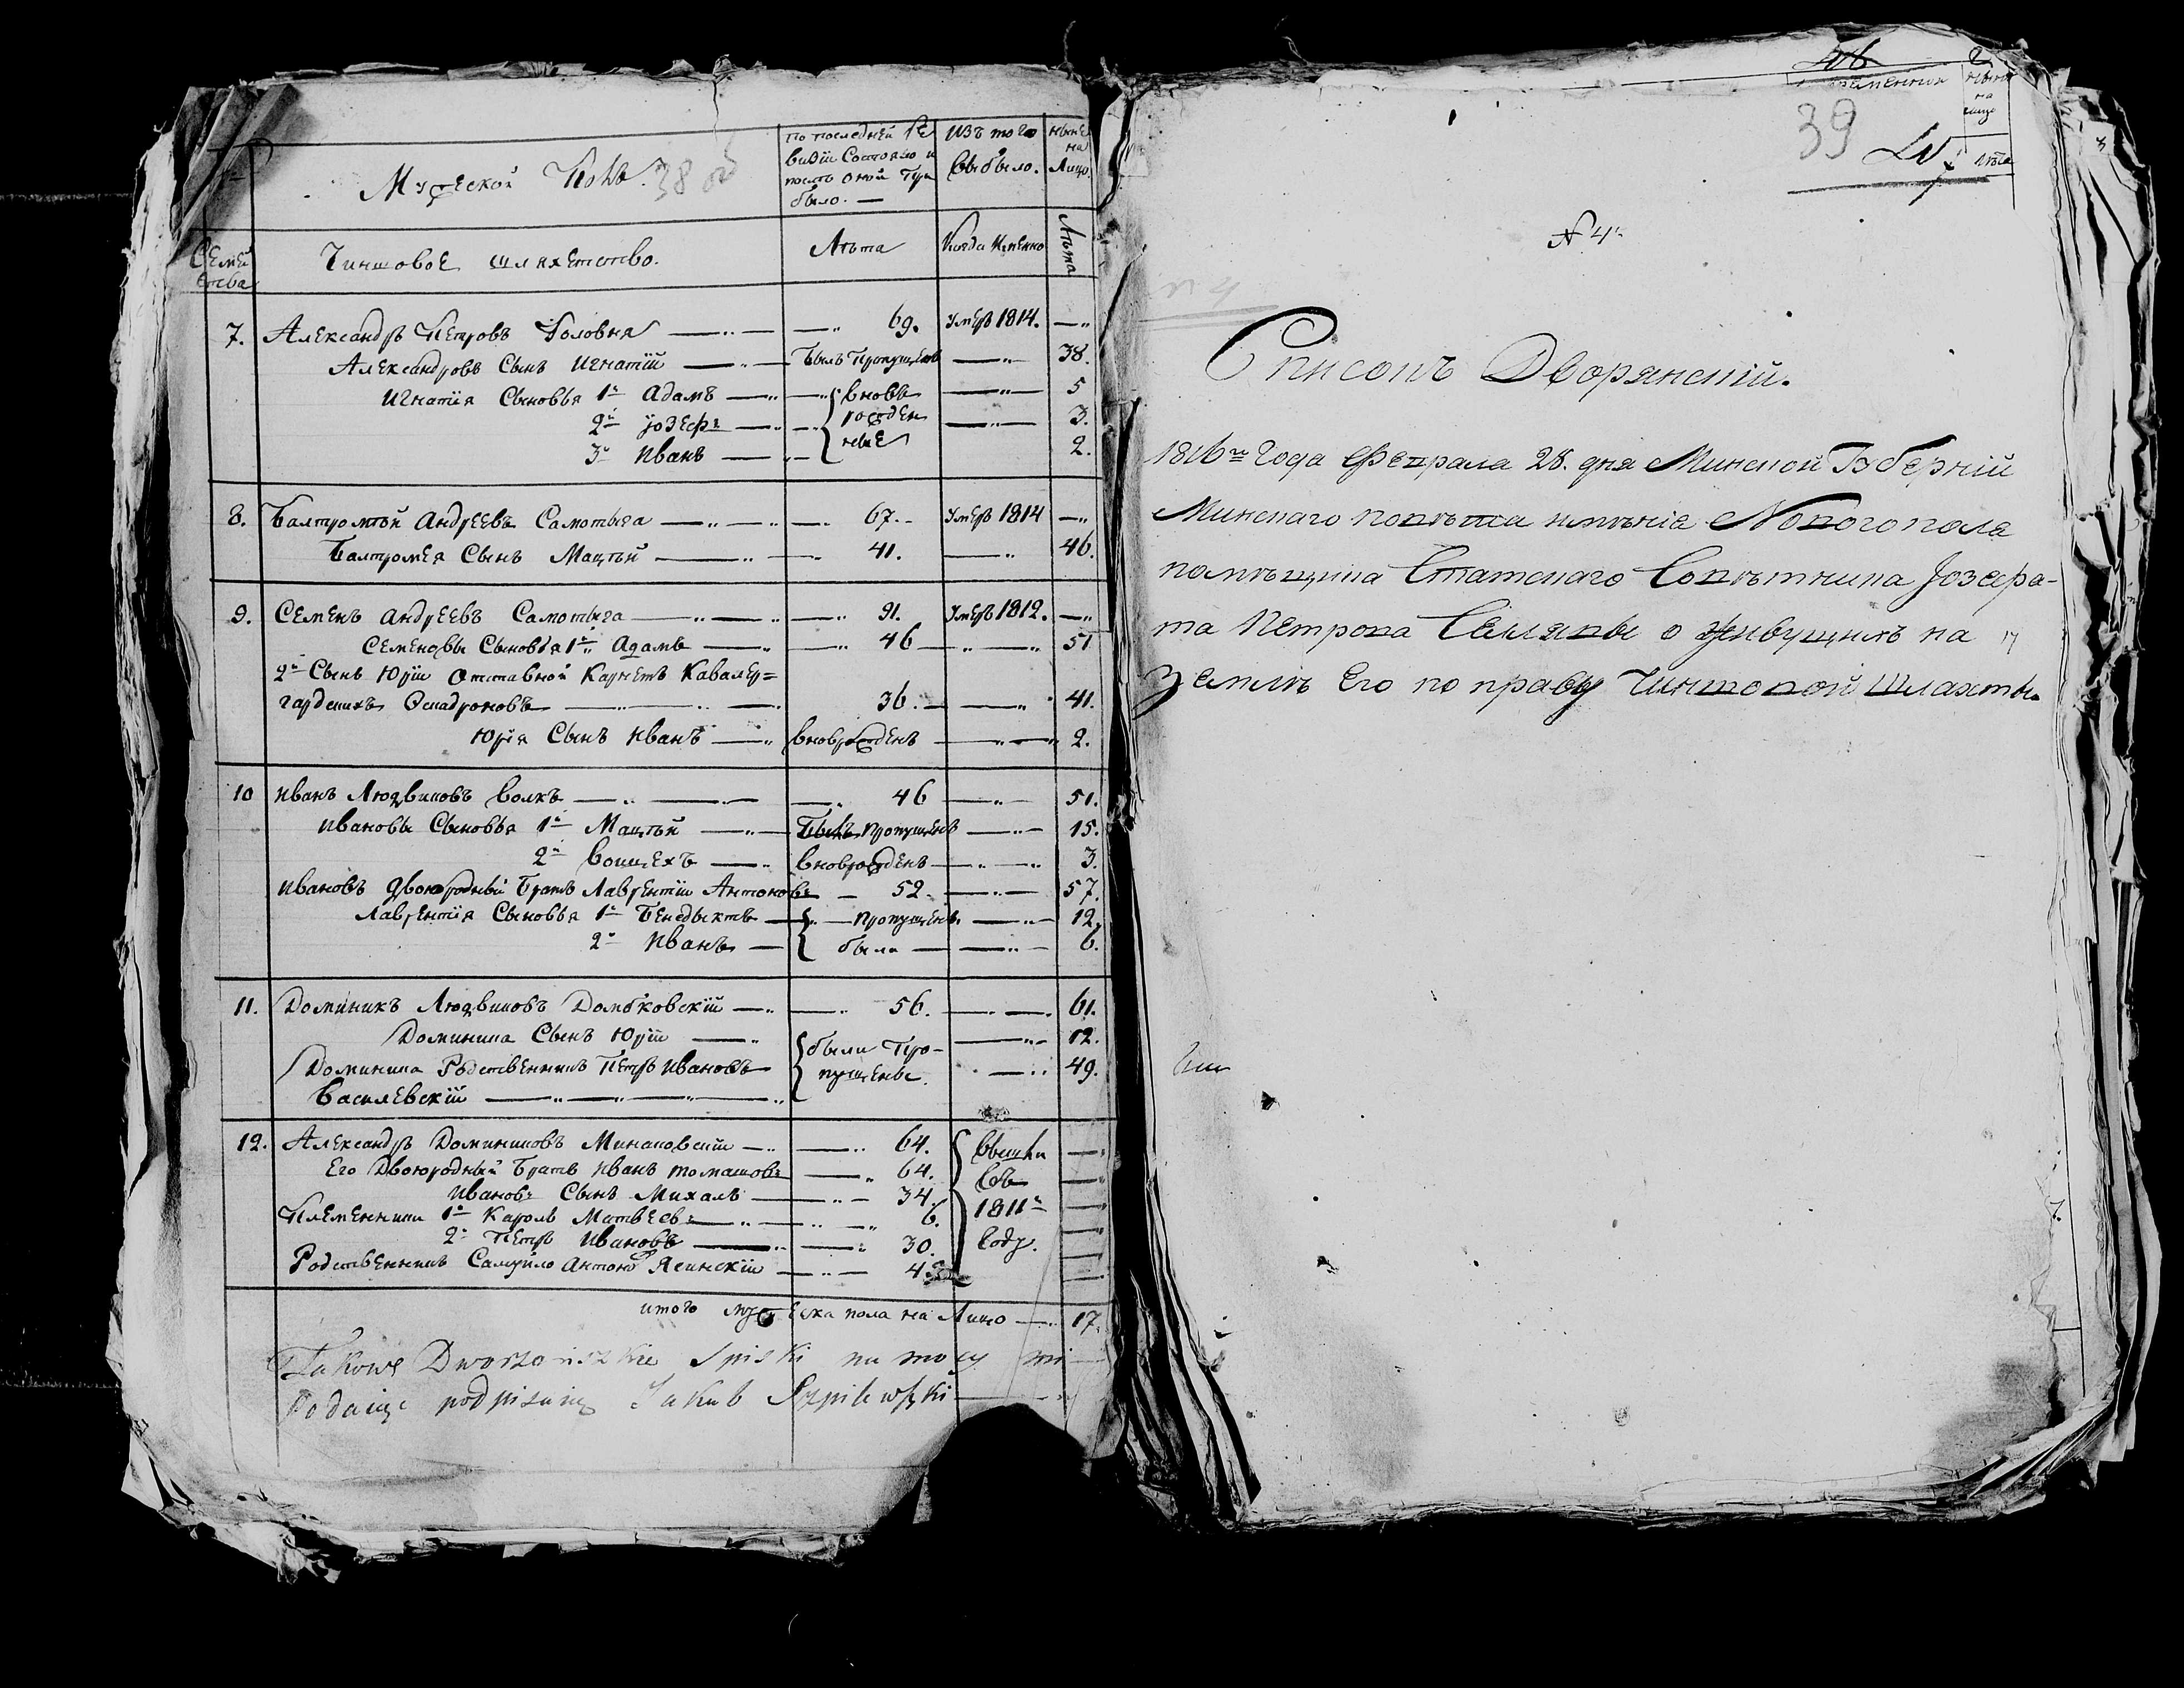 Мужеской Полъ. 38 об
по последней Ре
визіи Состояло и
послѣ оной При
было. —
Изъ того
Выбыло.
Нынѣ
на
Лицо.
Семей
ства
Чиншовое шляхетство.
Лѣта
Когда Имянно
Лѣта
7. Александръ Петровъ Головня — 69. Умеръ 1814. —
Александровъ Сынъ Игнатій — Былъ Пропущенъ — 38.
Игнатія Сыновья 1й Адамъ — вновь — 5
2й Јозефъ — рожден — 3.
3й Иванъ — ные 2.
8. Балтромѣй Андреевъ Самотыга — 67. Умеръ 1814 —
Балтромея Сынъ Мацѣй — 41. — 46.
9. Семенъ Андреевъ Самотыга — 91. Умеръ 1812. —
Семеновы Сыновья 1й Адамъ — 46 — 51
2й Сынъ Юрій Отставной Карнетъ Кавалер=
гардскихъ Эскадроновъ — 36. — 41.
Юрія Сынъ Иванъ — вноврожденъ — 2.
10 Иванъ Людвиковъ Волкъ — 46 — 51.
Ивановы Сыновья 1й Мацѣй — Былъ Пропущенъ — 15.
2й Войцехъ — вноврожденъ — 3.
Ивановъ Двоюродный Братъ Лаврентій Антоновъ — 52. — 57.
Лаврентія Сыновья 1й Бенедыктъ — пропущены — 12.
2й Иванъ — были — 6.
11. Доминикъ Людвиковъ Домбковскій — 56. — 61.
Доминика Сынъ Юрій — были Про- — 12.
Доминика Родственникъ Петръ Ивановъ пущены. — 49.
Василевскій —
12. Александръ Доминиковъ Минаковскій — 64. Вышли —
Его Двоюродный Братъ Иванъ Томашовъ — 64. Въ —
Ивановъ Сынъ Михалъ — 34. 1811м —
Племенники 1й Кароль Матвеевъ — 6. Году. —
2й Петръ Ивановъ — 30. —
Родственникъ Самуйло Антоновъ Ясинскій — 4 —
итого мужеска пола на Лицо — 17.
Takowe Dworzańskie Spiski na mocy mi
Podaiąc podpisuię Jakub Szpilewski
39
№ 4й
№ 4
Списокъ Дворянскій.
1816го Года Февраля 28. дня Минской Губерніи
Минскаго повѣта имѣнія Новогополя
помѣщика Статскаго Совѣтника Јозефа-
та Петрова Селявы о живущихъ на
землѣ Его по праву Чиншовой Шляхты.